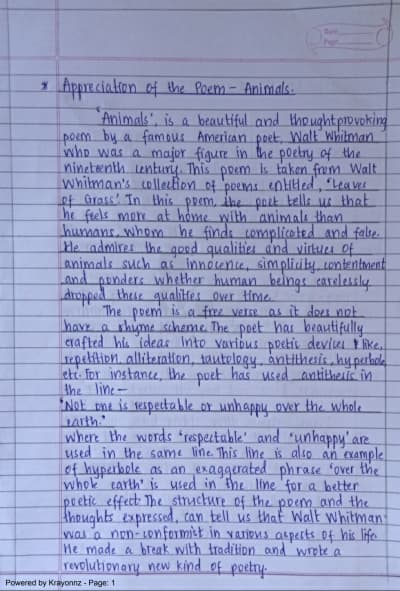 Date
Page
* Appreciation of the Poem - Animals.
'Animals', is a beautiful and thoughtprovoking
poem by a famous American poet, Walt Whitman
who was a major figure in the poetry of the
nineteenth century. This poem is taken from Walt
Whitman's collection of poems entitled, 'Leaves
of Grass'. In this poem, the poet tells us that
he feels more at home with animals than
humans, whom he finds complicated and false.
He admires the good qualities and virtues of
animals such as innocence, simplicity, contentment
and ponders whether human beings carelessly
dropped these qualities over time.
The poem is a free verse as it does not
have a rhyme scheme. The poet has beautifully
crafted his ideas into various poetic devices like,
repetition, alliteration, tautology, antithesis, hyperbole,
etc. for instance, the poet has used antithesis in
the line -
'Not one is respectable or unhappy over the whole
earth.'
where the words 'respectable' and 'unhappy' are
used in the same line. This line is also an example
of hyperbole as an exaggerated phrase 'over the
whole earth' is used in the line for a better
poetic effect. The structure of the poem and the
thoughts expressed, can tell us that Walt Whitman
was a non-conformist in various aspects of his life.
He made a break with tradition and wrote a
revolutionary new kind of poetry.
Powered by Krayonnz - Page: 1